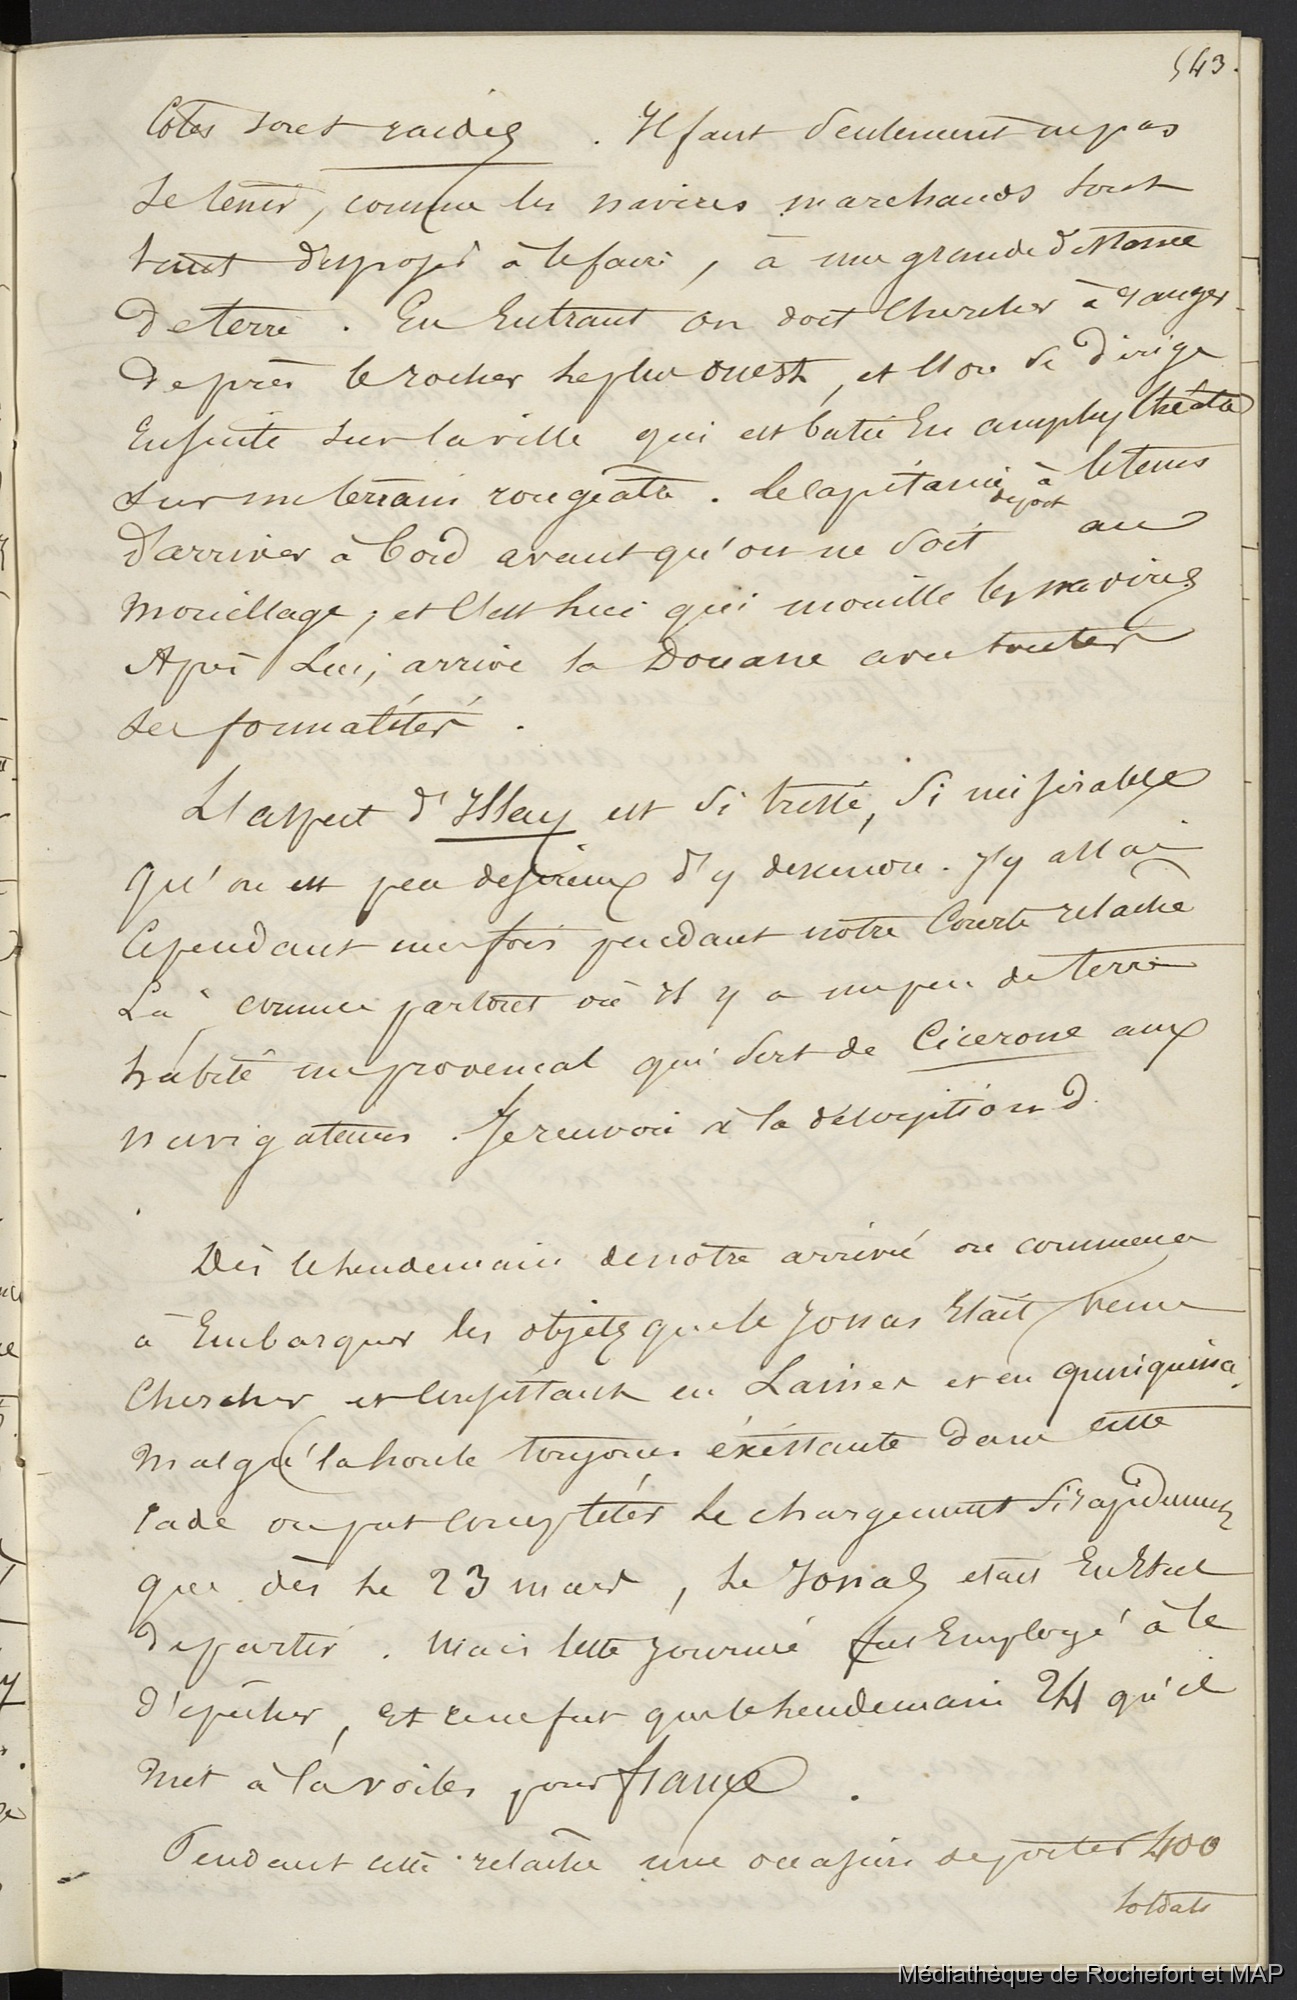 543.
Côtes sont raides. Il faut seulement ne pas
se tenir, comme les navires marchands sont
tant disposés à le faire, à une grande distance
de terre. En Entrant on doit Chercher à ranger
de près le rocher le plus ouest, et l'on se dirige
Ensuite sur la ville qui est batie En amphythéatre
sur un terrain rougeâtre. Le Capitaine de port à le tems
d'arriver à bord avant qu'on ne soit au
Mouillage, et C'est lui qui mouille les navires
Après Lui, arrive la Douane avec toutes
ses formalités.
L'aspect d'Islay est si triste, si misérable
qu'on est peu désireux d'y descendre. J'y allai
Cependant une fois pendant notre Courte relâche
Là, comme partout où il y a un peu de terre
habité un provencal qui sert de Cicerone aux
navigateurs. Je renvoie à la déscription d
Dès le lendemain de notre arrivé on commença
à Embarquer les objets que le Jonas Etait venu
Chercher et Consistant en Laines et en quinquina.
Malgré la houle toujours éxistante dans cette
rade on put compléter le chargement si rapidement
que dès le 23 mars, le Jonas etait En Etat
de partir. Mais Cette journée fut Employé à le
d'épécher, Et ce ne fut que le lendemain 24 qu'il
mit à la voiles pour france.
Pendant cette relâche une occasion de porter 400
soldats
Médiathèque de Rochefort et MAP